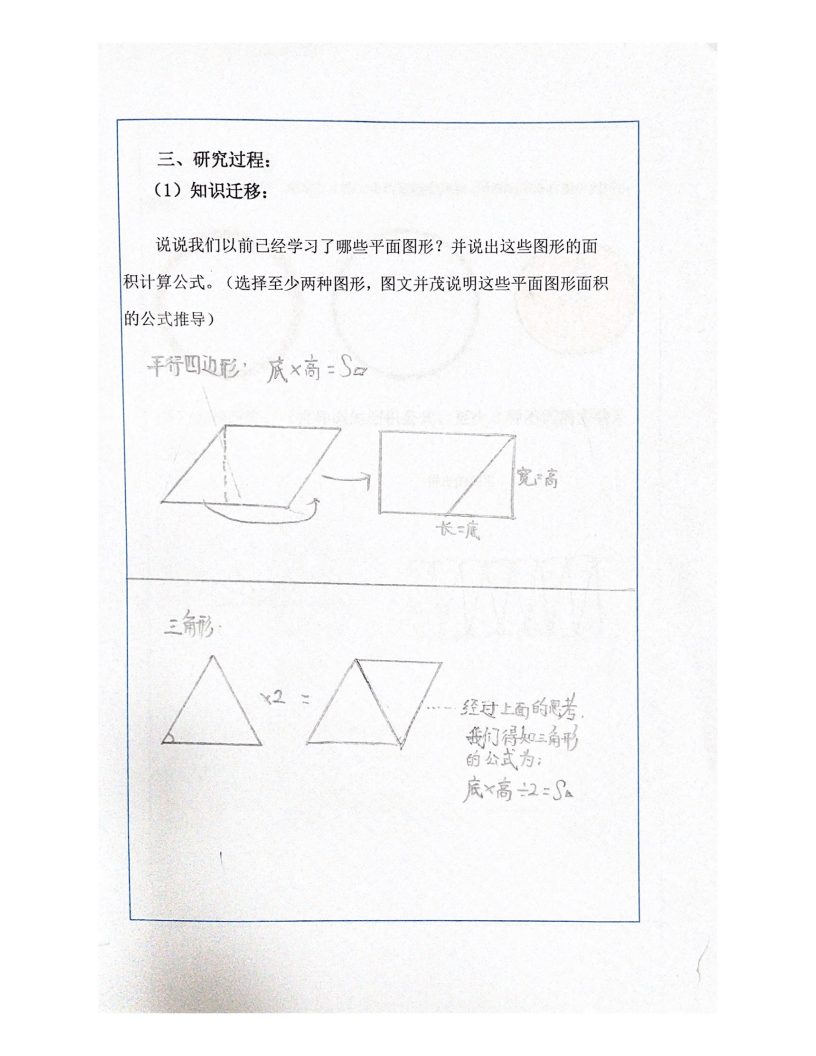 三、研究过程：
（1）知识迁移：
说说我们以前已经学习了哪些平面图形？并说出这些图形的面
积计算公式。（选择至少两种图形，图文并茂说明这些平面图形面积
的公式推导）
平行四边形：底×高=S▱
宽=高
长=底
三角形：
×2 =
……经过上面的思考，
我们得知三角形
的公式为：
底×高÷2=S△